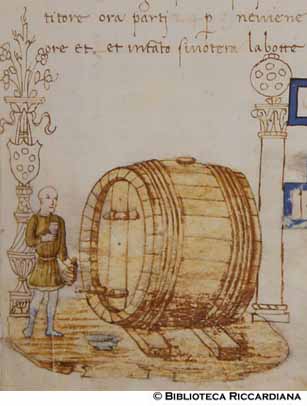 titore ora parti p neviene
ore et. et infato sinotera labotte
© BIBLIOTECA RICCARDIANA